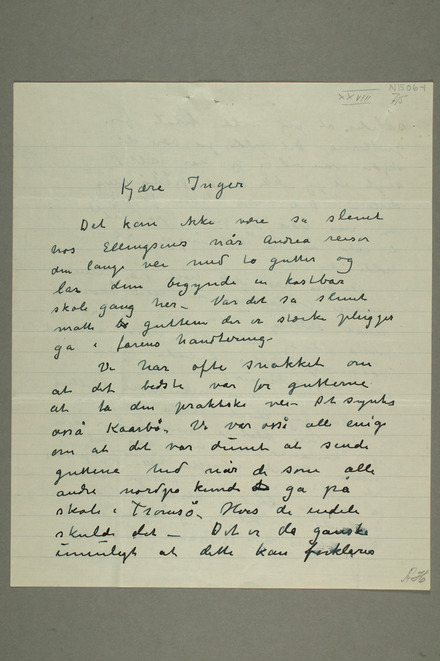 NB064
XXVIII 7/5
Kjære Inger
Det kan ikke være så slemt
hos Ellingsens når Andrea reiser
den lange vei med to gutter og
lar dem begynde en kostbar
skole gang her. Var det så slemt
måtte guttene der er sterke plugger
gå i farens håndtering.
Vi har ofte snakket om
at det bedste var for gutterne
at ta den praktiske vei. Det syntes
også Kaarbø. Vi var også alle enige
om at det var dumt at sende
guttene ned når de som alle
andre nordpå kunde gå på
skole i Tromsø. Hvis de endelig
skulde det — Det er da ganske
umuligt at dette kan forklares